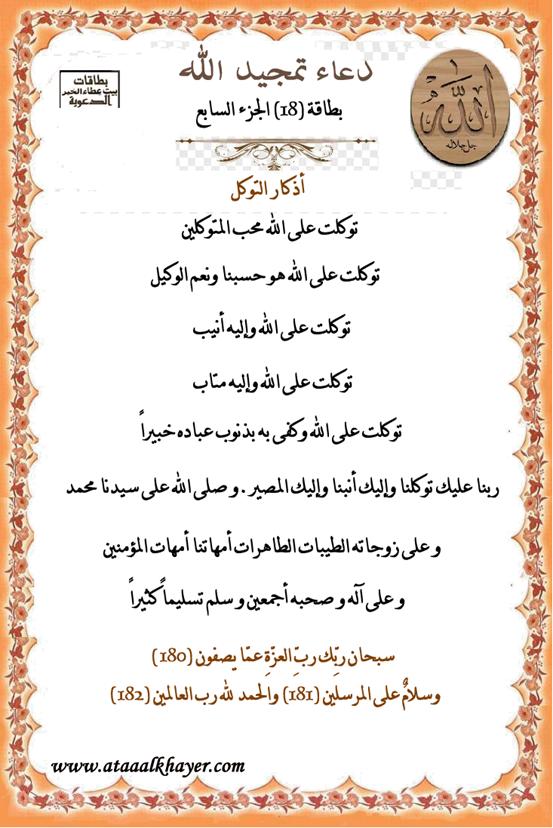 دعاء تمجيد الله
بطاقات
بيت عطاء الخير
الدعوية
الله
جل جلاله
بطاقة (18) الجزء السابع
أذكار التوكل
توكلت على الله محب المتوكلين
توكلت على الله هو حسبنا ونعم الوكيل
توكلت على الله وإليه أنيب
توكلت على الله وإليه متاب
توكلت على الله وكفى به بذنوب عباده خبيراً
ربنا عليك توكلنا وإليك أنبنا وإليك المصير. وصلى الله على سيدنا محمد
وعلى زوجاته الطيبات الطاهرات أمهاتنا أمهات المؤمنين
وعلى آله وصحبه أجمعين وسلم تسليماً كثيراً
سبحان ربِّك ربِّ العزّةِ عمّا يصفون (180)
وسلامٌ على المرسلين (181) والحمد لله رب العالمين (182)
www.ataaalkhayer.com